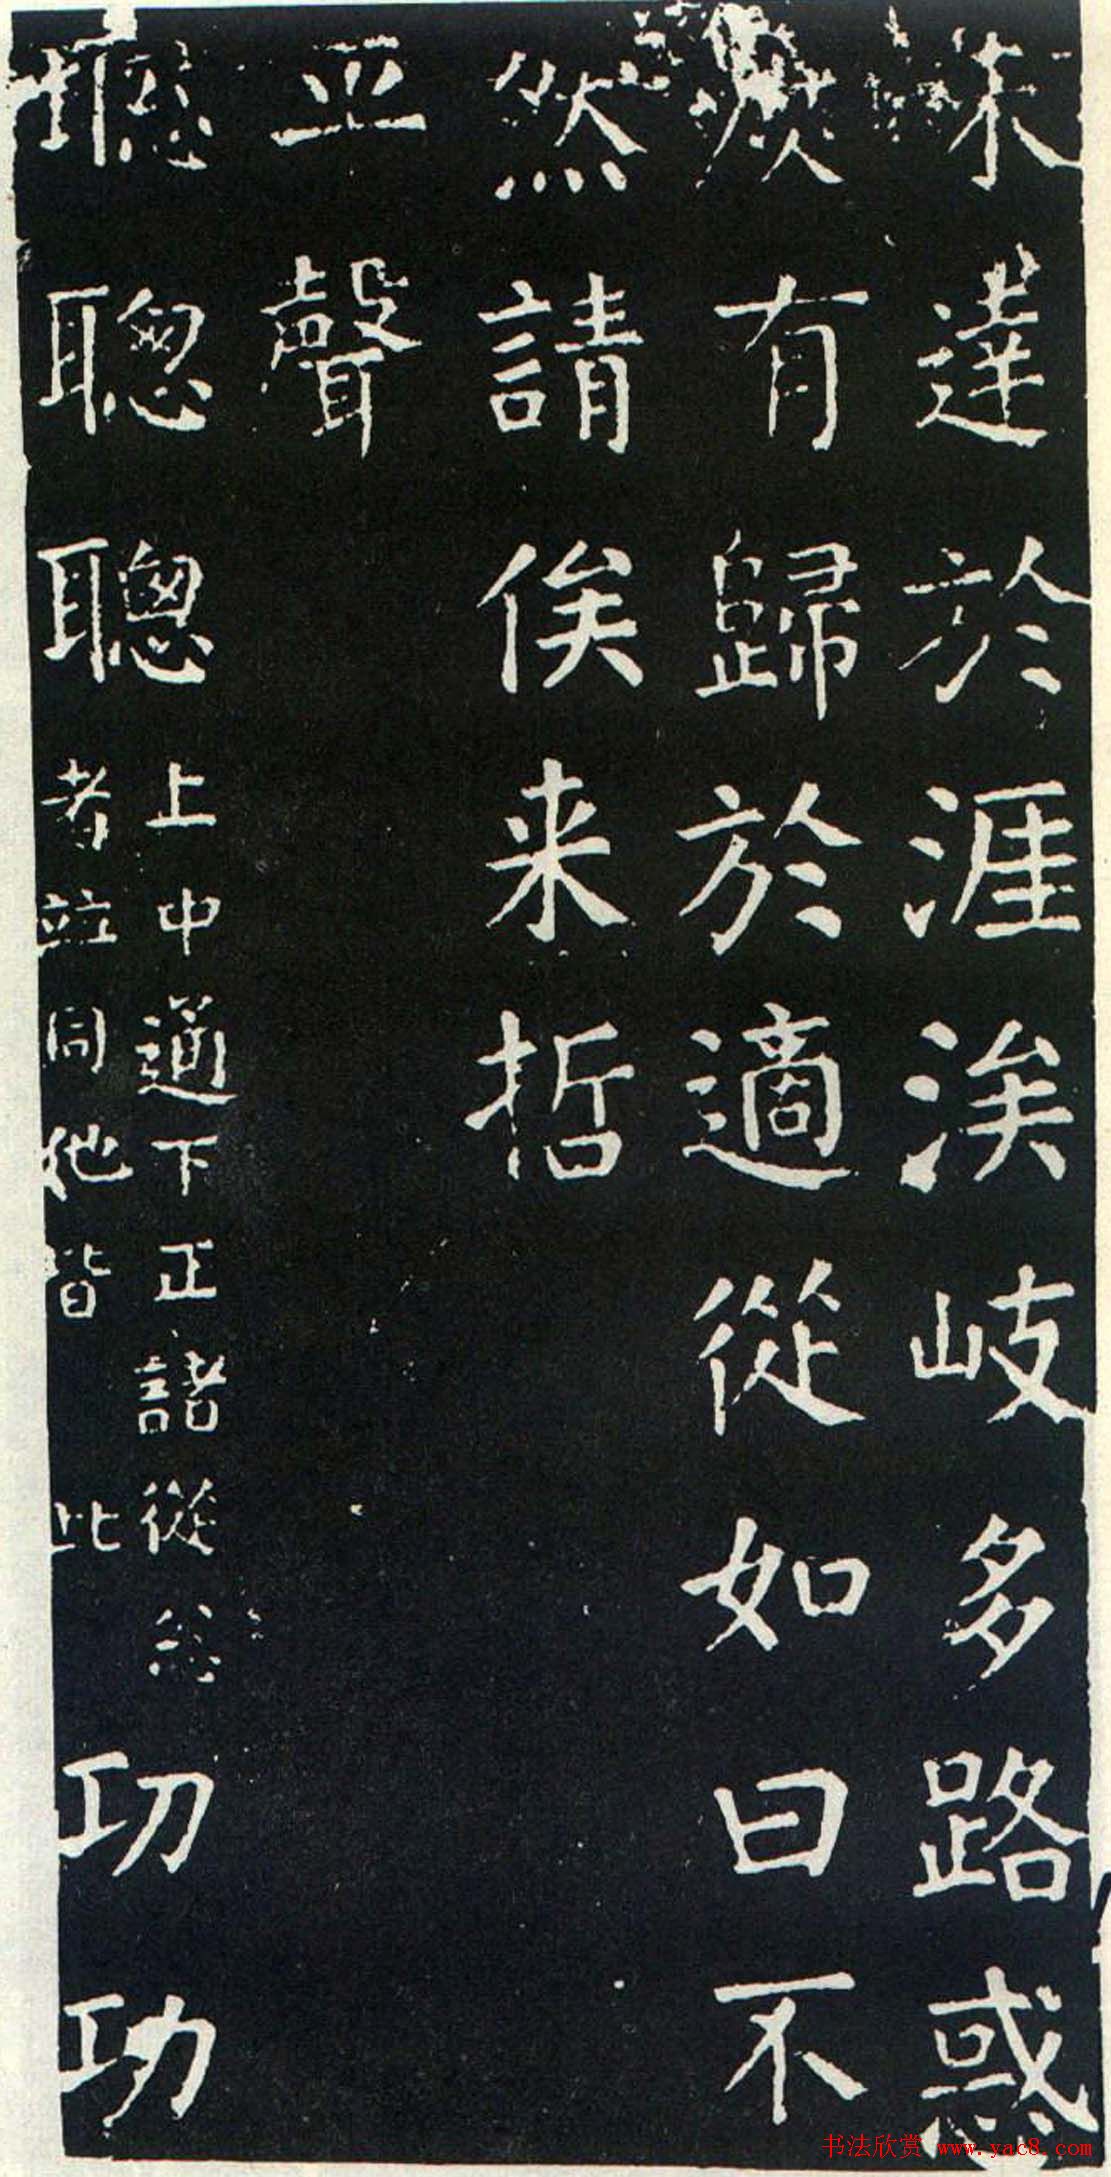 未達於涯涘岐多路惑
有歸於適從如曰不
然請俟来哲
平聲
聡聦聰
上中通下正諸從忩
者竝同他皆此
㓛功
书法欣赏 www.yac8.com